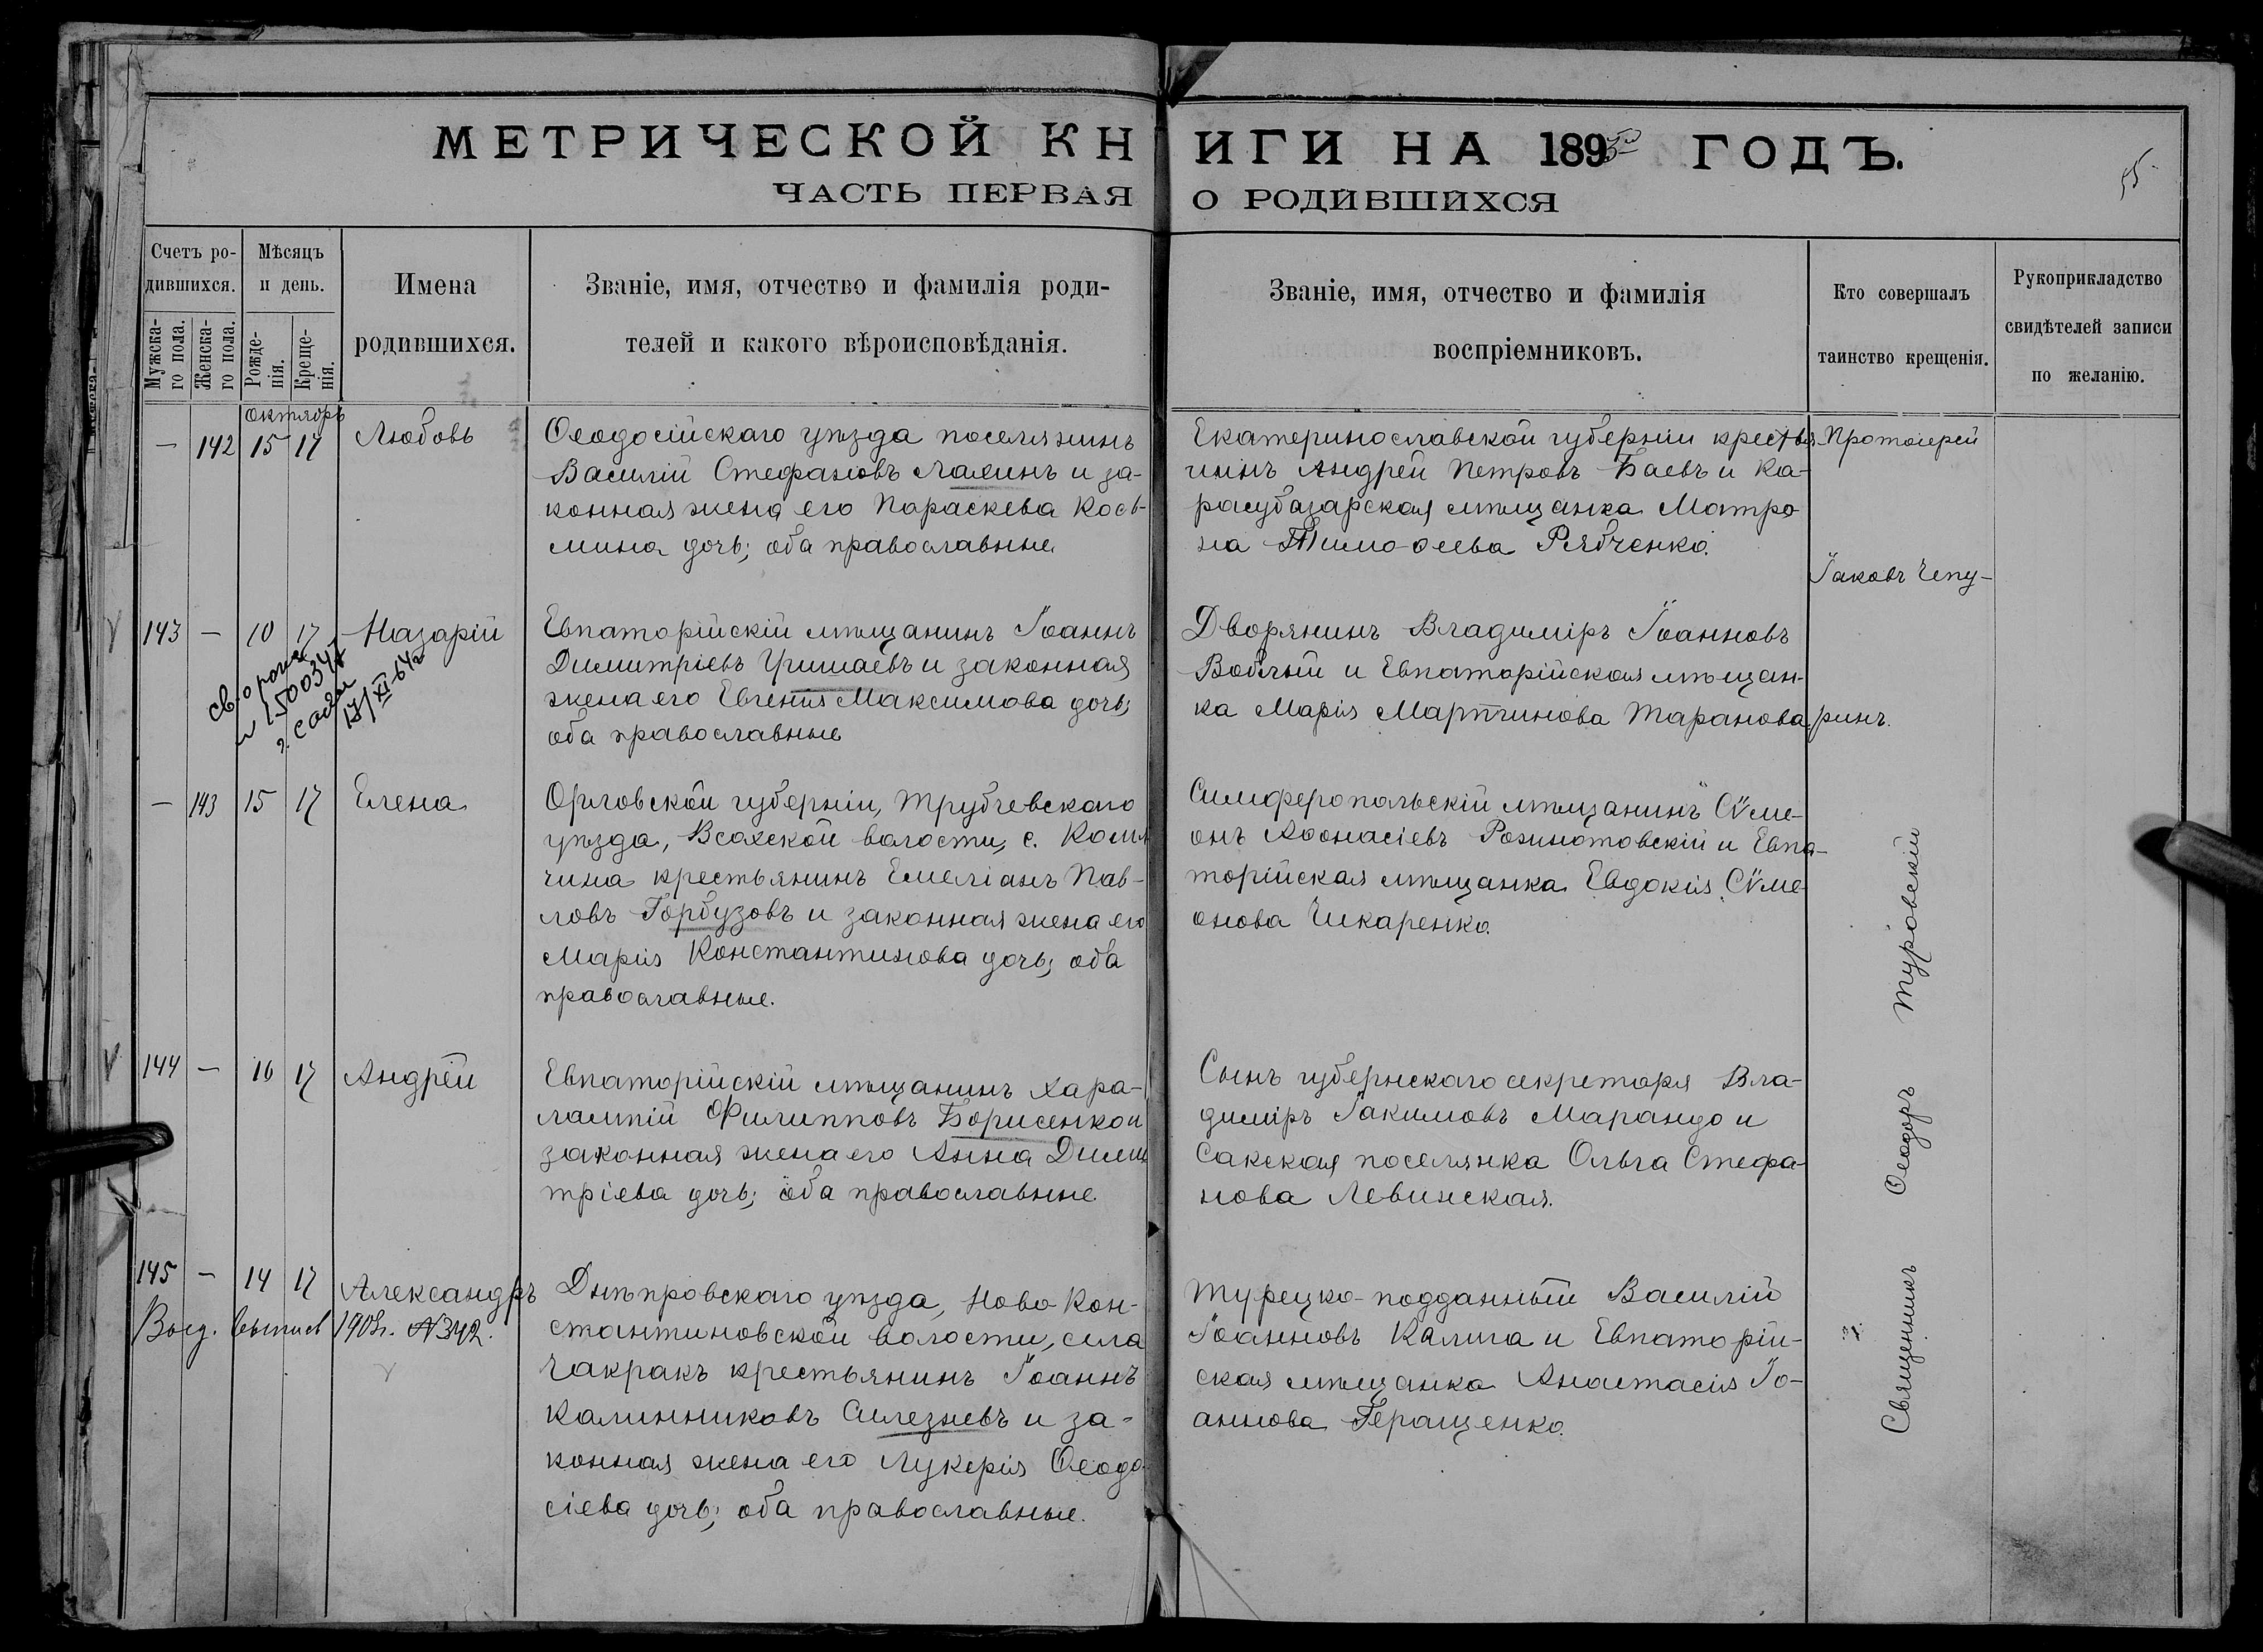 МЕТРИЧЕСКОЙ КНИГИ НА 1895й ГОДЪ.
ЧАСТЬ ПЕРВАЯ О РОДИВШИХСЯ
55
Счетъ ро-
дившихся.
Мужска-
го пола.
Женска-
го пола.
Мѣсяцъ
и день.
Рожде-
нія.
Креще-
нія.
Имена
родившихся.
Званіе, имя, отчество и фамилія роди-
телей и какого вѣроисповѣданія.
Званіе, имя, отчество и фамилія
воспріемниковъ.
Кто совершалъ
таинство крещенія.
Рукоприкладство
свидѣтелей записи
по желанію.
Октябрь
— 142 15 17 Любовь
Ѳеодосійскаго уѣзда поселянинъ
Василій Стефановъ Лалинъ и за-
конная жена его Параскева Кось-
мина дочь; оба православные
Екатеринославской губерніи крестья
нинъ Андрей Петровъ Баевъ и Ка-
расубазарская мѣщанка Матро
на Тимоѳеева Рябченко.
143 — 10 17 Назарій
св. о рожд
г. Саки
17/XI-64г
Евпаторійскій мѣщанинъ Іоаннъ
Димитріевъ Гришаевъ и законная
жена его Евгенія Максимова дочь;
оба православные
Дворянинъ Владиміръ Іоанновъ
Воблый и Евпаторійская мѣщан-
ка Марія Мартинова Таранова.
— 143 15 17 Елена
Орловской губерніи, Трубчевскаго
уѣзда, Всохской волости, с. Коля
чина крестьянинъ Емеліанъ Пав-
ловъ Горбузовъ и законная жена его
Марія Константинова дочь; оба
православные.
Симферопольскій мѣщанинъ Сѵме-
онъ Аѳонасіевъ Рохинотовскій и Евпа-
торійская мѣщанка Евдокія Сѵме-
онова Чикаренко.
144 — 16 17 Андрей
Евпаторійскій мѣщанинъ Хара-
лампій Филипповъ Борисенко и
законная жена его Анна Дими
тріева дочь; оба православные.
Сынъ губернскаго секретаря Вла-
диміръ Іакимовъ Марандо и
Сакская поселянка Ольга Стефа-
нова Левинская.
145 — 14 17 Александръ
Выд. выпись 1908г. №342.
Днѣпровскаго уѣзда, Ново Кон-
стантиновской волости, села
Чакракъ крестьянинъ Іоаннъ
Калинниковъ Силезневъ и за-
конная жена его Лукерія Ѳеодо-
сіева дочь; оба православные.
Турецко-подданный Василій
Іоанновъ Калича и Евпаторій-
ская мѣщанка Анастасія Іо-
аннова Геращенко.
Протоіерей
Іаковъ Чепу-
ринъ.
Священникъ Ѳеодоръ Туровскій